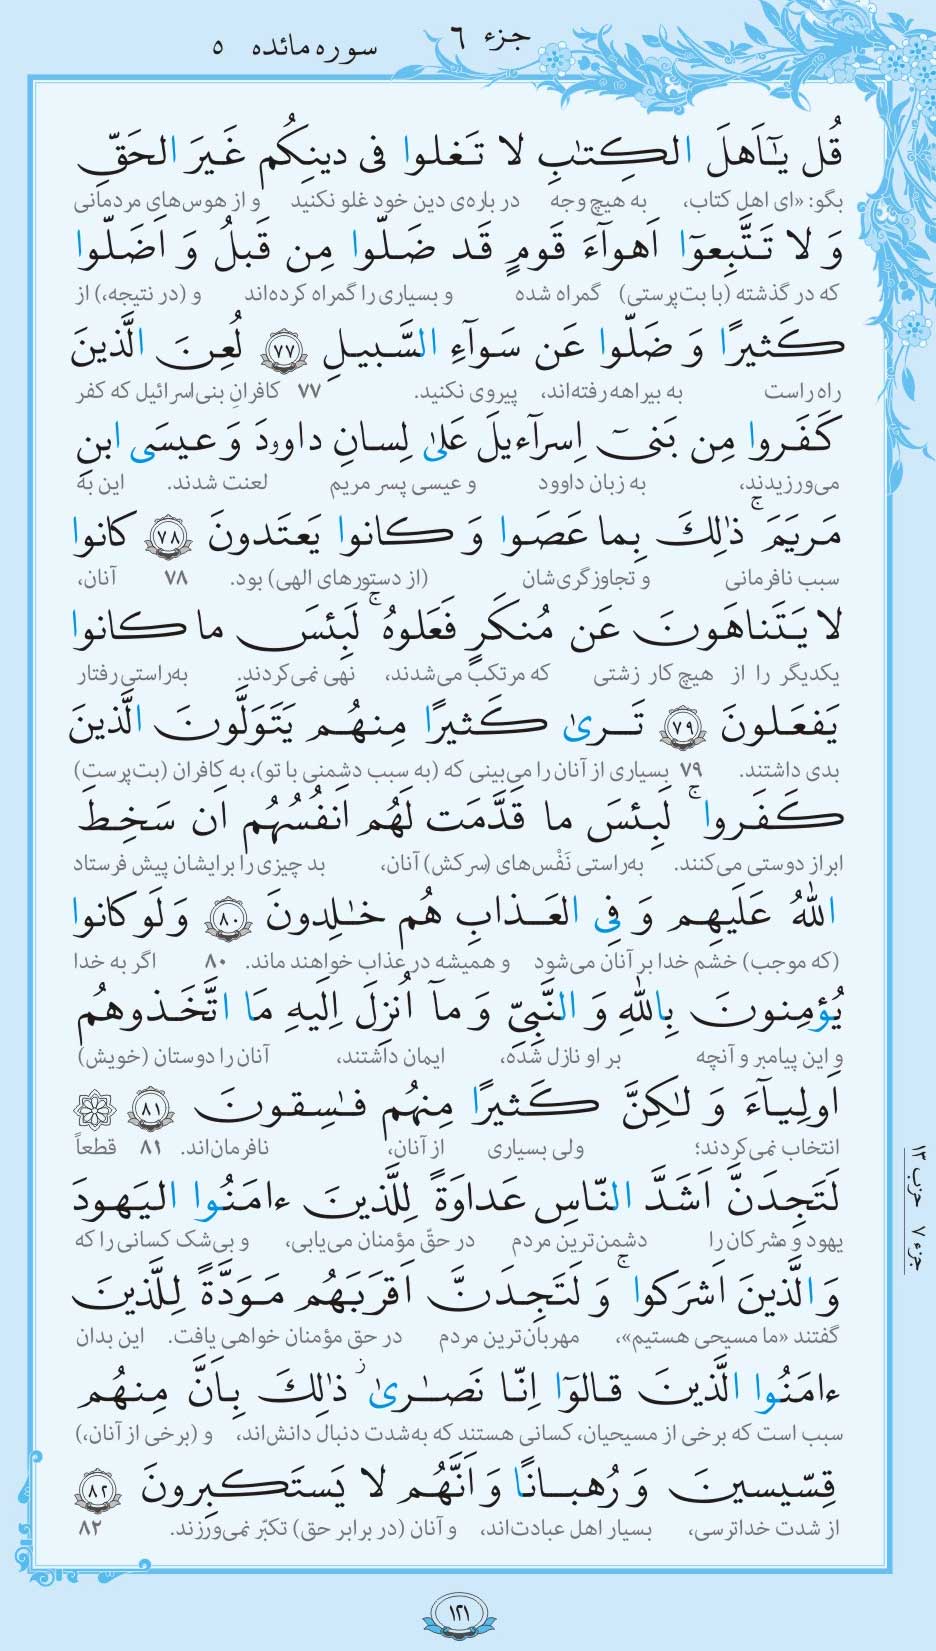 جزء ۶
سوره مائده ۵
قُل يـٰٓاَهلَ الكِتـٰبِ لا تَغلوا فى دينِكُم غَيرَ الحَقِّ
بگو: «ای اهل کتاب، به هیچ‌وجه در باره‌ی دین خود غلو نکنید و از هوس‌های مردمانی
وَ لا تَتَّبِعوٓا اَهوآءَ قَومٍ قَد ضَلّوا مِن قَبلُ وَ اَضَلّوا
که در گذشته (با بت‌پرستی) گمراه شده و بسیاری را گمراه کرده‌اند و (در نتیجه،) از
كَثيرًا وَ ضَلّوا عَن سَوآءِ السَّبيلِ ﴿۷۷﴾ لُعِنَ الَّذينَ
راه راست به بیراهه رفته‌اند، پیروی نکنید. ۷۷ کافرانِ بنی‌اسرائیل که کفر
كَفَروا مِن بَنىٓ اِسرآءيلَ عَلىٰ لِسانِ داوودَ وَ عيسَى ابنِ
می‌ورزیدند، به زبان داوود و عیسی پسر مریم لعنت شدند. این به
مَريَمَ ۚ ذٰلِكَ بِما عَصَوا وَ كانوا يَعتَدونَ ﴿۷۸﴾ كانوا
سبب نافرمانی و تجاوزگری‌شان (از دستورهای الهی) بود. ۷۸ آنان،
لا يَتَناهَونَ عَن مُنكَرٍ فَعَلوهُ ۚ لَبِئسَ ما كانوا
یکدیگر را از هیچ کار زشتی که مرتکب می‌شدند، نهی نمی‌کردند. به‌راستی رفتار
يَفعَلونَ ﴿۷۹﴾ تَرىٰ كَثيرًا مِنهُم يَتَوَلَّونَ الَّذينَ
بدی داشتند. ۷۹ بسیاری از آنان را می‌بینی که (به سبب دشمنی با تو)، به کافران (بت‌پرست)
كَفَروا ۚ لَبِئسَ ما قَدَّمَت لَهُم اَنفُسُهُم اَن سَخِطَ
ابراز دوستی می‌کنند. به‌راستی نَفْس‌های (سرکش) آنان، بد چیزی را برایشان پیش فرستاد
اللهُ عَلَيهِم وَ فِى العَذابِ هُم خـٰلِدونَ ﴿۸۰﴾ وَ لَو كانوا
(که موجب) خشم خدا بر آنان می‌شود و همیشه در عذاب خواهند ماند. ۸۰ اگر به خدا
يُؤمِنونَ بِاللهِ وَ النَّبِىِّ وَ مآ اُنزِلَ اِلَيهِ مَا اتَّخَذوهُم
و این پیامبر و آنچه بر او نازل شده، ایمان داشتند، آنان را دوستان (خویش)
اَولِيآءَ وَ لـٰكِنَّ كَثيرًا مِنهُم فـٰسِقونَ ﴿۸۱﴾
انتخاب نمی‌کردند؛ ولی بسیاری از آنان، نافرمان‌اند. ۸۱ قطعاً
لَتَجِدَنَّ اَشَدَّ النّاسِ عَداوَةً لِلَّذينَ ءامَنُوا اليَهودَ
یهود و مشرکان را دشمن‌ترین مردم در حقّ مؤمنان می‌یابی، و بی‌شک کسانی را که
وَ الَّذينَ اَشرَكوا ۚ وَ لَتَجِدَنَّ اَقرَبَهُم مَوَدَّةً لِلَّذينَ
گفتند «ما مسیحی هستیم»، مهربان‌ترین مردم در حق مؤمنان خواهی یافت. این بدان
ءامَنُوا الَّذينَ قالوٓا اِنّا نَصـٰرىٰ ز ذٰلِكَ بِاَنَّ مِنهُم
سبب است که برخی از مسیحیان، کسانی هستند که به‌شدت دنبال دانش‌اند، و (برخی از آنان،)
قِسّيسينَ وَ رُهبانًا وَ اَنَّهُم لا يَستَكبِرونَ ﴿۸۲﴾
از شدت خداترسی، بسیار اهل عبادت‌اند، و آنان (در برابر حق) تکبّر نمی‌ورزند. ۸۲
جزء ۷ حزب ۱۳
۱۲۱